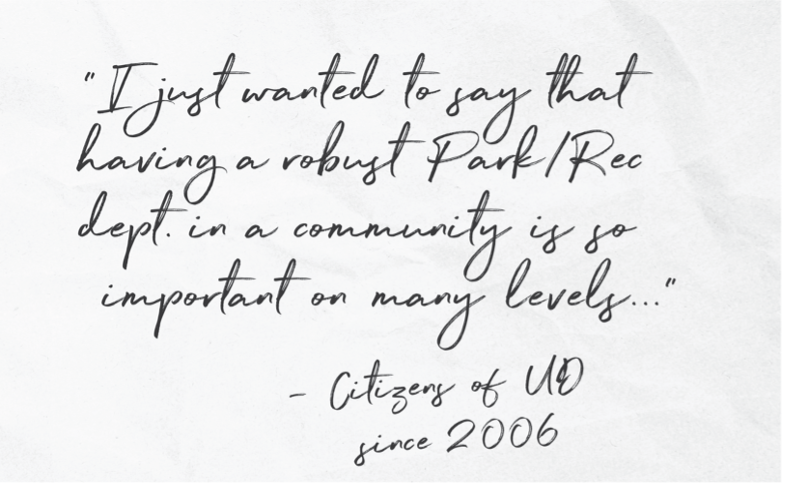 "I just wanted to say that
having a robust Park/Rec
dept. in a community is so
important on many levels..."
- Citizens of UD
since 2006